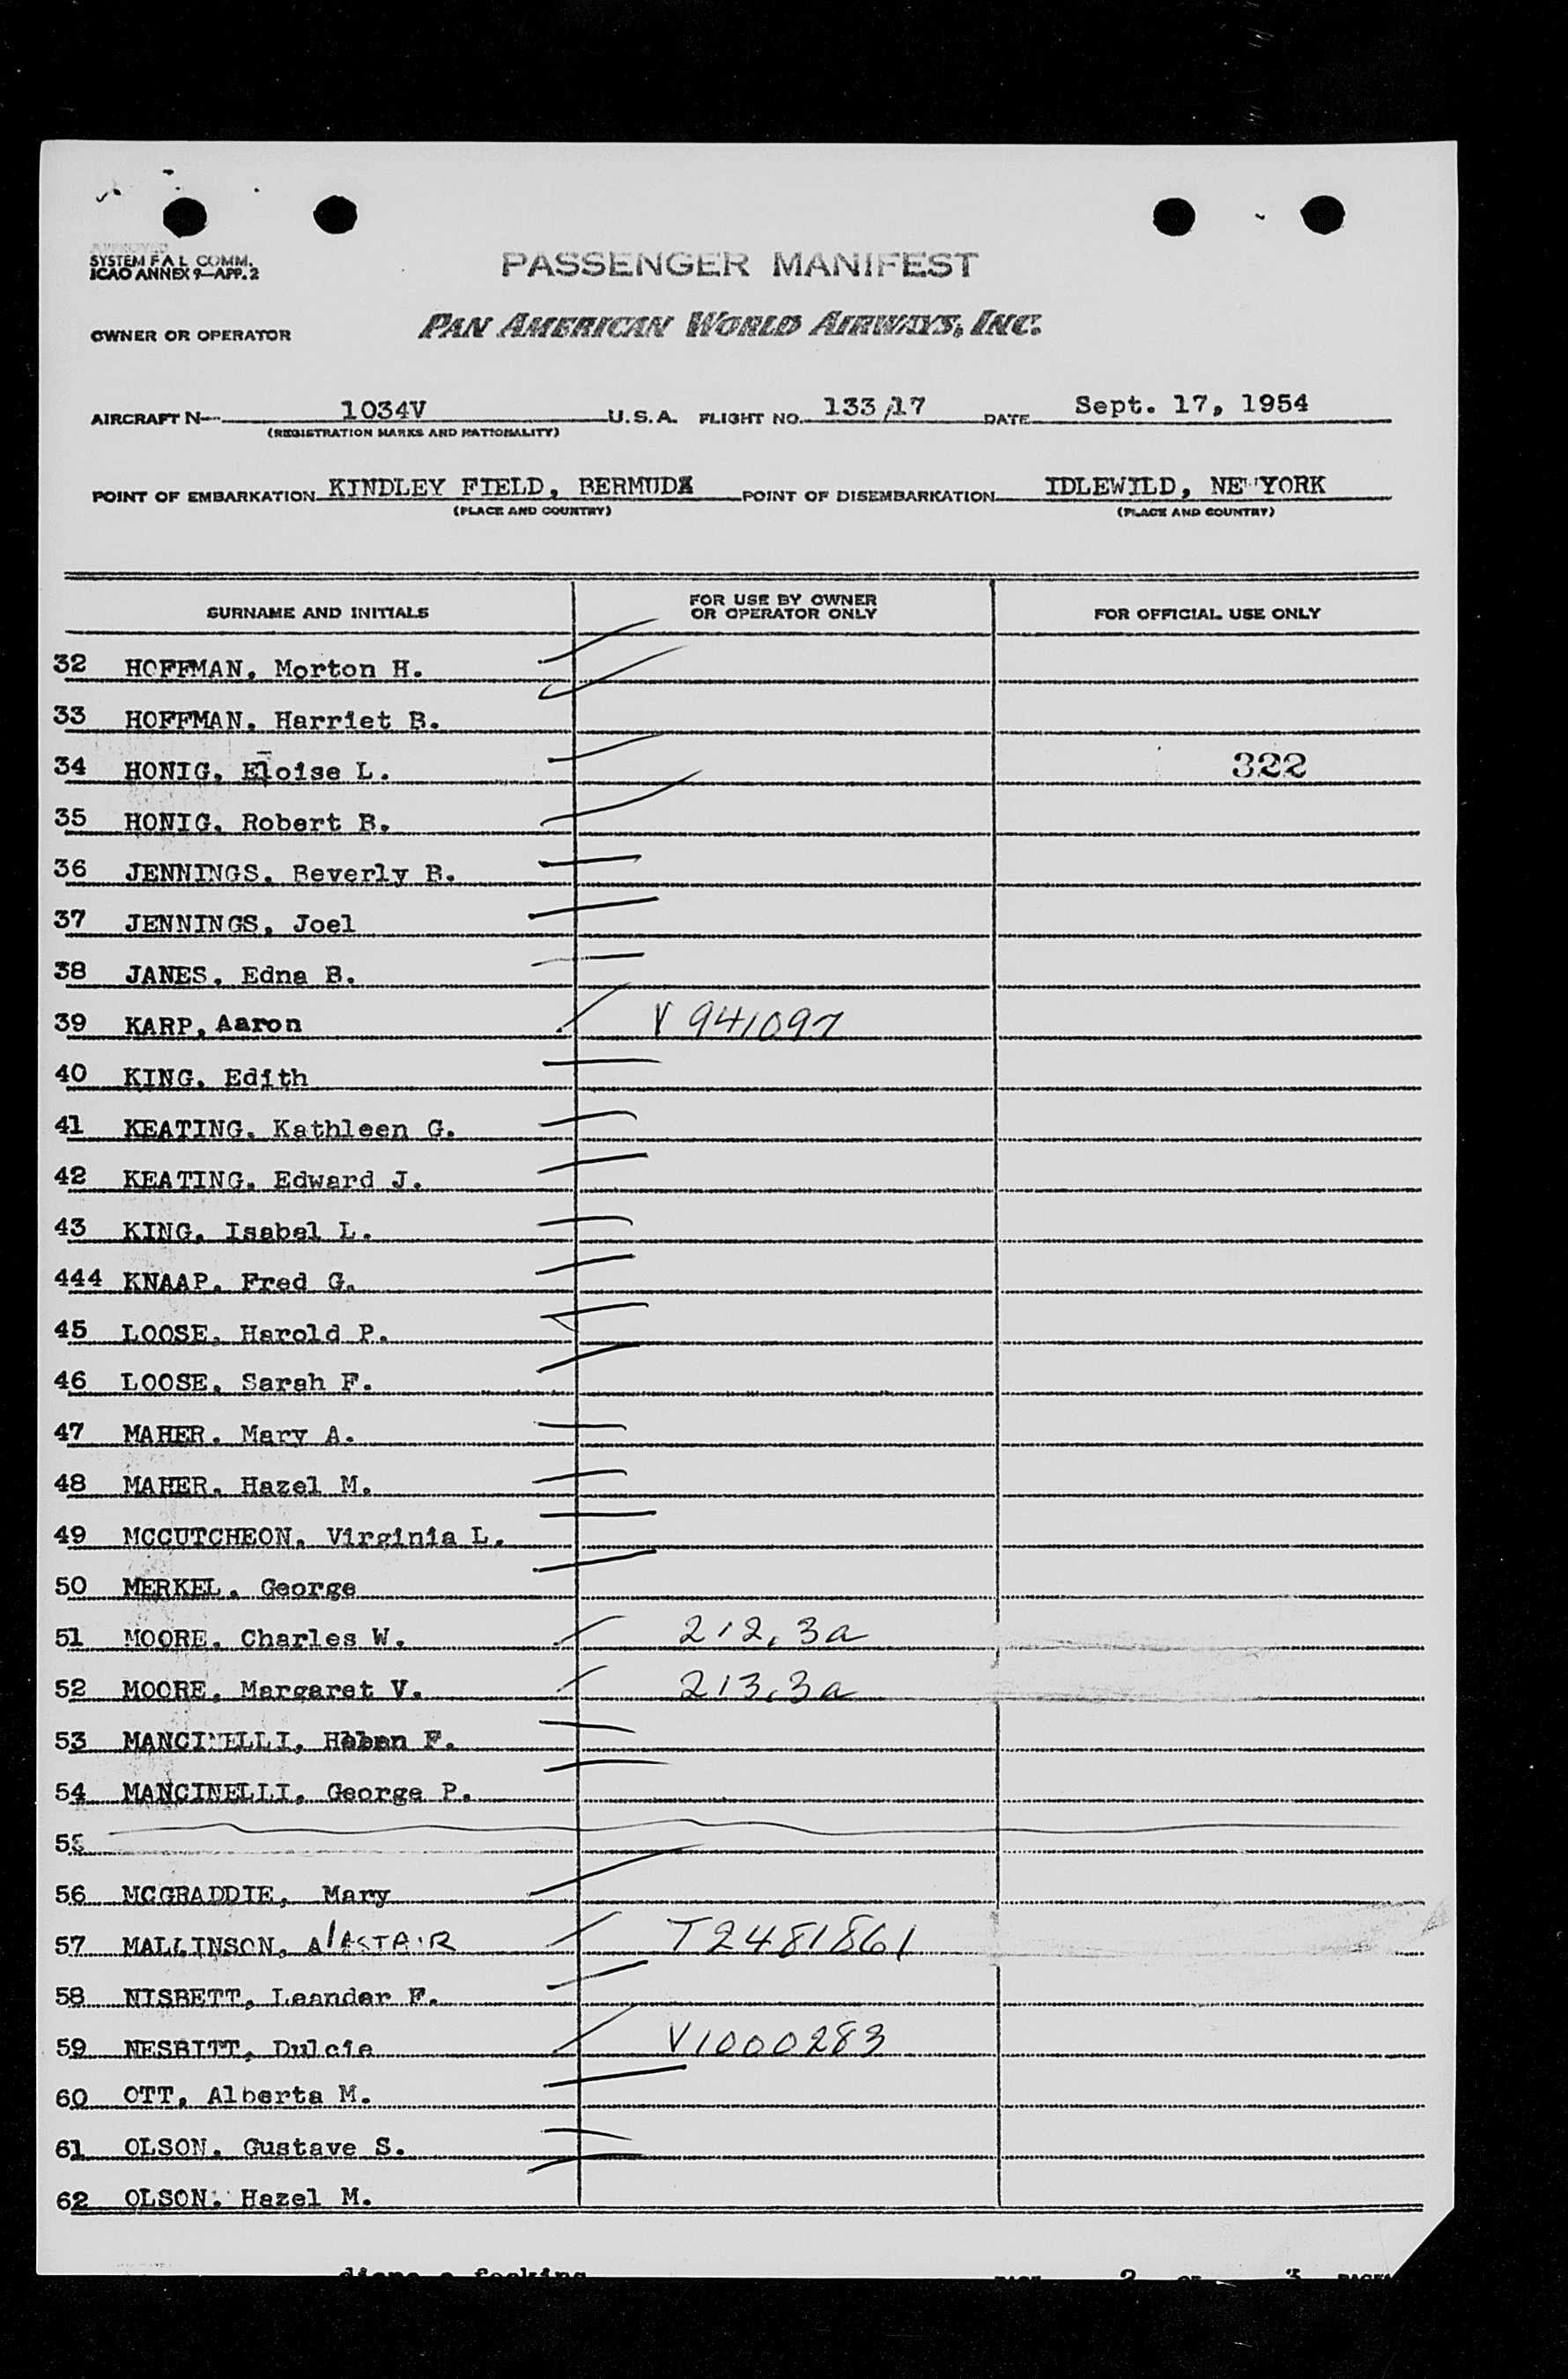 SYSTEM F A L COMM.
ICAO ANNEX 9—APP. 2
PASSENGER MANIFEST
OWNER OR OPERATOR PAN AMERICAN WORLD AIRWAYS, INC.
AIRCRAFT N— 1034V U.S.A. FLIGHT NO. 133/17 DATE Sept. 17, 1954
(REGISTRATION MARKS AND NATIONALITY)
POINT OF EMBARKATION KINDLEY FIELD, BERMUDA POINT OF DISEMBARKATION IDLEWILD, NEW YORK
(PLACE AND COUNTRY) (PLACE AND COUNTRY)
SURNAME AND INITIALS FOR USE BY OWNER OR OPERATOR ONLY FOR OFFICIAL USE ONLY
32 HOFFMAN, Morton H.
33 HOFFMAN, Harriet B.
34 HONIG, Eloise L. 322
35 HONIG, Robert B.
36 JENNINGS, Beverly B.
37 JENNINGS, Joel
38 JANES, Edna B.
39 KARP, Aaron V 941097
40 KING, Edith
41 KEATING, Kathleen G.
42 KEATING, Edward J.
43 KING, Isabel L.
444 KNAAP, Fred G.
45 LOOSE, Harold P.
46 LOOSE, Sarah F.
47 MAHER, Mary A.
48 MAHER, Hazel M.
49 MCCUTCHEON, Virginia L.
50 MERKEL, George
51 MOORE, Charles W. 212.3a
52 MOORE, Margaret V. 213.3a
53 MANCINELLI, F.
54 MANCINELLI, George P.
55
56 MCGRADDIE, Mary
57 MALLINSON, AlASTAIR T2481861
58 NISBETT, Leander F.
59 NESBITT, Dulcie V1000283
60 OTT, Alberta M.
61 OLSON, Gustave S.
62 OLSON, Hazel M.
PAGE 2 OF 3 PAGES